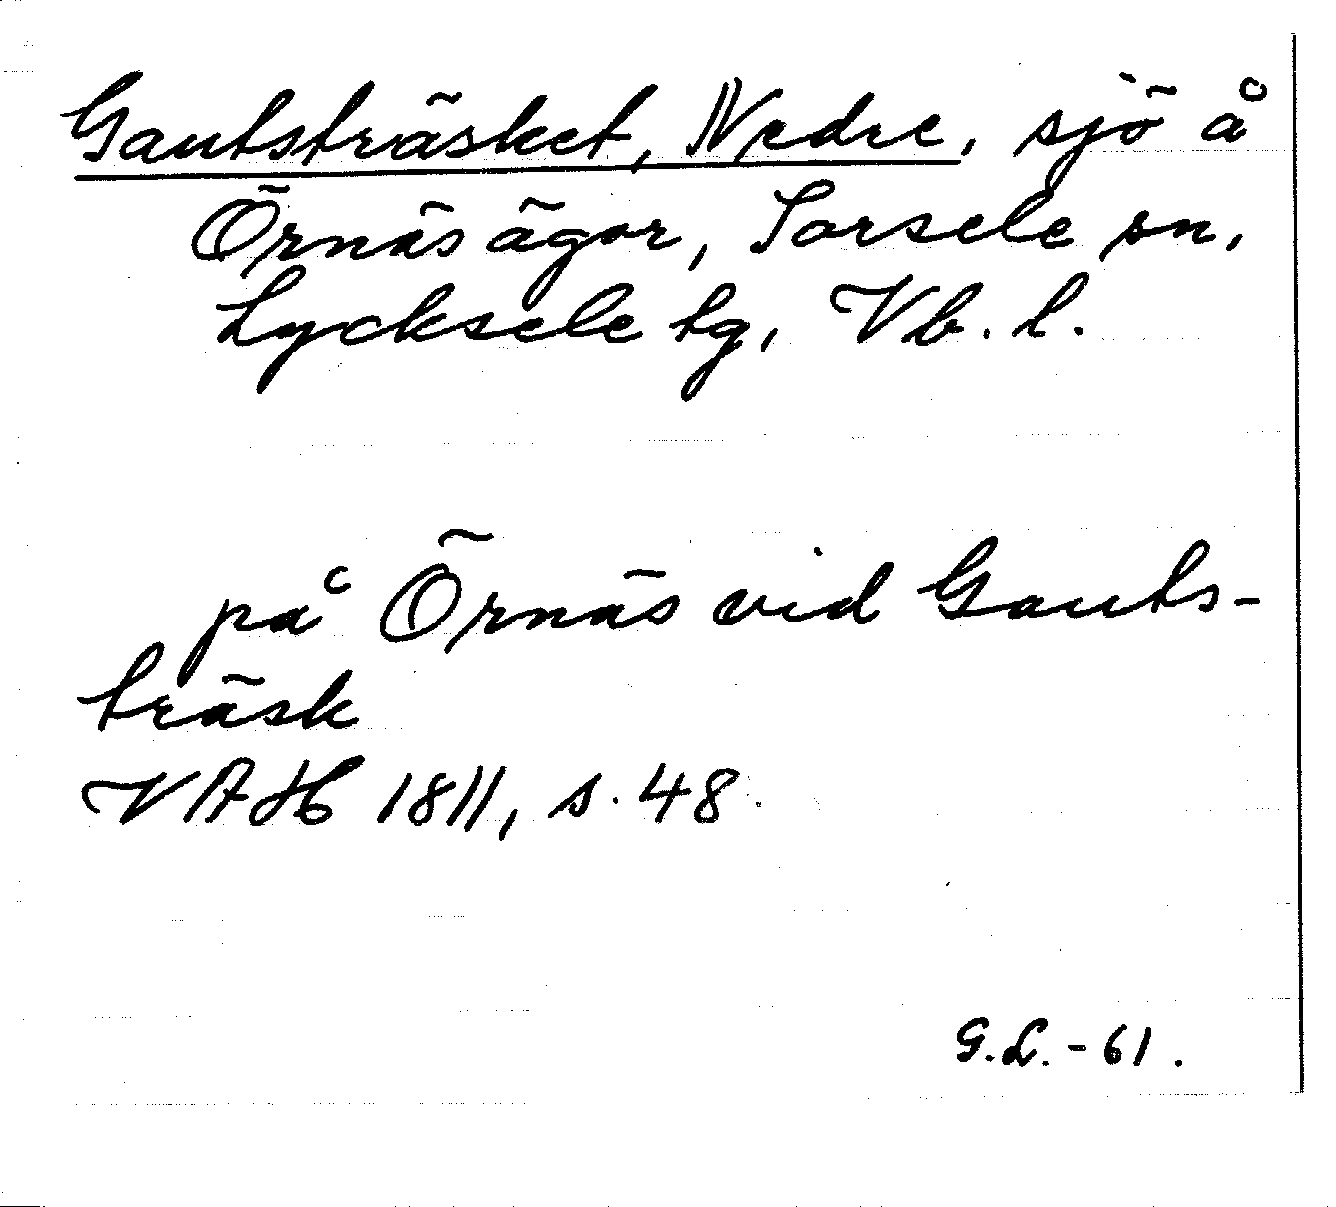 Gautsträsket, Nedre, sjö å
Örnäs ägor, Sorsele sn,
Lycksele tg, Vb. l.
på Örnäs vid Gauts-
träsk
VAH 1811, s. 48.
G.L. - 61.